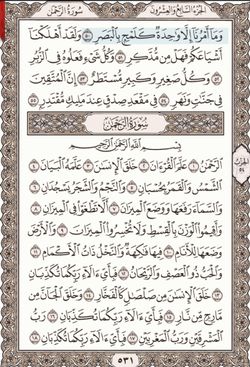 الجزء السابع والعشرون سورة الرحمن
وَمَا أَمْرُنَا إِلَّا وَاحِدَةٌ كَلَمْحٍ بِالْبَصَرِ ٥٠ وَلَقَدْ أَهْلَكْنَا
أَشْيَاعَكُمْ فَهَلْ مِن مُّدَّكِرٍ ٥١ وَكُلُّ شَيْءٍ فَعَلُوهُ فِي الزُّبُرِ
٥٢ وَكُلُّ صَغِيرٍ وَكَبِيرٍ مُّسْتَطَرٌ ٥٣ إِنَّ الْمُتَّقِينَ
فِي جَنَّاتٍ وَنَهَرٍ ٥٤ فِي مَقْعَدِ صِدْقٍ عِندَ مَلِيكٍ مُّقْتَدِرٍ ٥٥
سورة الرحمن
بِسْمِ اللَّهِ الرَّحْمَٰنِ الرَّحِيمِ
الرَّحْمَٰنُ ١ عَلَّمَ الْقُرْآنَ ٢ خَلَقَ الْإِنسَانَ ٣ عَلَّمَهُ الْبَيَانَ ٤
الشَّمْسُ وَالْقَمَرُ بِحُسْبَانٍ ٥ وَالنَّجْمُ وَالشَّجَرُ يَسْجُدَانِ ٦
وَالسَّمَاءَ رَفَعَهَا وَوَضَعَ الْمِيزَانَ ٧ أَلَّا تَطْغَوْا فِي الْمِيزَانِ ٨
وَأَقِيمُوا الْوَزْنَ بِالْقِسْطِ وَلَا تُخْسِرُوا الْمِيزَانَ ٩ وَالْأَرْضَ
وَضَعَهَا لِلْأَنَامِ ١٠ فِيهَا فَاكِهَةٌ وَالنَّخْلُ ذَاتُ الْأَكْمَامِ ١١
وَالْحَبُّ ذُو الْعَصْفِ وَالرَّيْحَانُ ١٢ فَبِأَيِّ آلَاءِ رَبِّكُمَا تُكَذِّبَانِ
١٣ خَلَقَ الْإِنسَانَ مِن صَلْصَالٍ كَالْفَخَّارِ ١٤ وَخَلَقَ الْجَانَّ مِن
مَّارِجٍ مِّن نَّارٍ ١٥ فَبِأَيِّ آلَاءِ رَبِّكُمَا تُكَذِّبَانِ ١٦ رَبُّ
الْمَشْرِقَيْنِ وَرَبُّ الْمَغْرِبَيْنِ ١٧ فَبِأَيِّ آلَاءِ رَبِّكُمَا تُكَذِّبَانِ ١٨
٥٣١